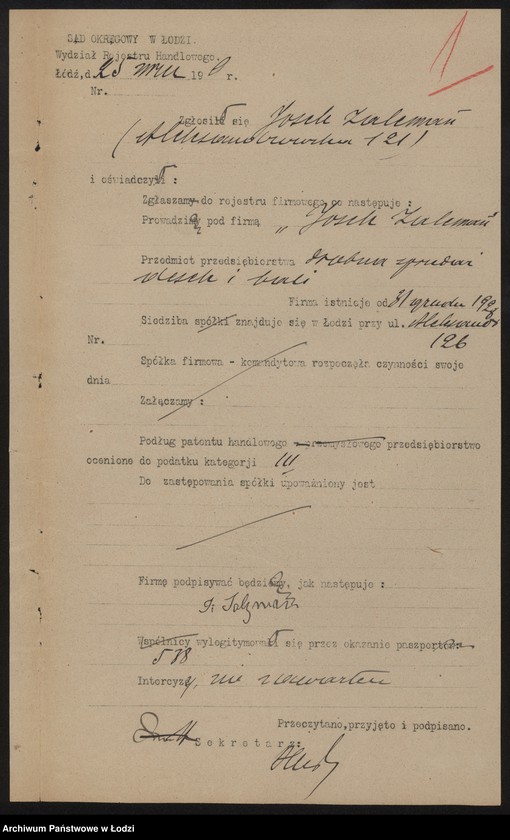 1
SĄD OKRĘGOWY W ŁODZI.
Wydział Rejestru Handlowego.
Łódź, d. 25 191 r.
Nr.
Zgłosił się Josek Zalcman
(Aleksandrowska 121)
i oświadczył :
Zgłaszamy do rejestru firmowego co następuje :
Prowadzimy pod firmą „Josek Zalcman"
Przedmiot przedsiębiorstwa drobna sprzedaż
desek i bali
Firma istnieje od 31 grudn 19
Siedziba spółki znajduje się w Łodzi przy ul. Aleksandr
Nr. 126
Spółka firmowa - komandytowa rozpoczęła czynności swoje
dnia
Załączamy :
Podług patentu handlowego - przemysłowego przedsiębiorstwo
ocenione do podatku kategorji III
Do zastępowania spółki upoważniony jest
Firmę podpisywać będziemy, jak następuje :
Wspólnicy wylegitymował się przez okazanie paszportów
578
Intercyzy, nie zawarłem
Przeczytano, przyjęto i podpisano.
Sekretarz:
Archiwum Państwowe w Łodzi